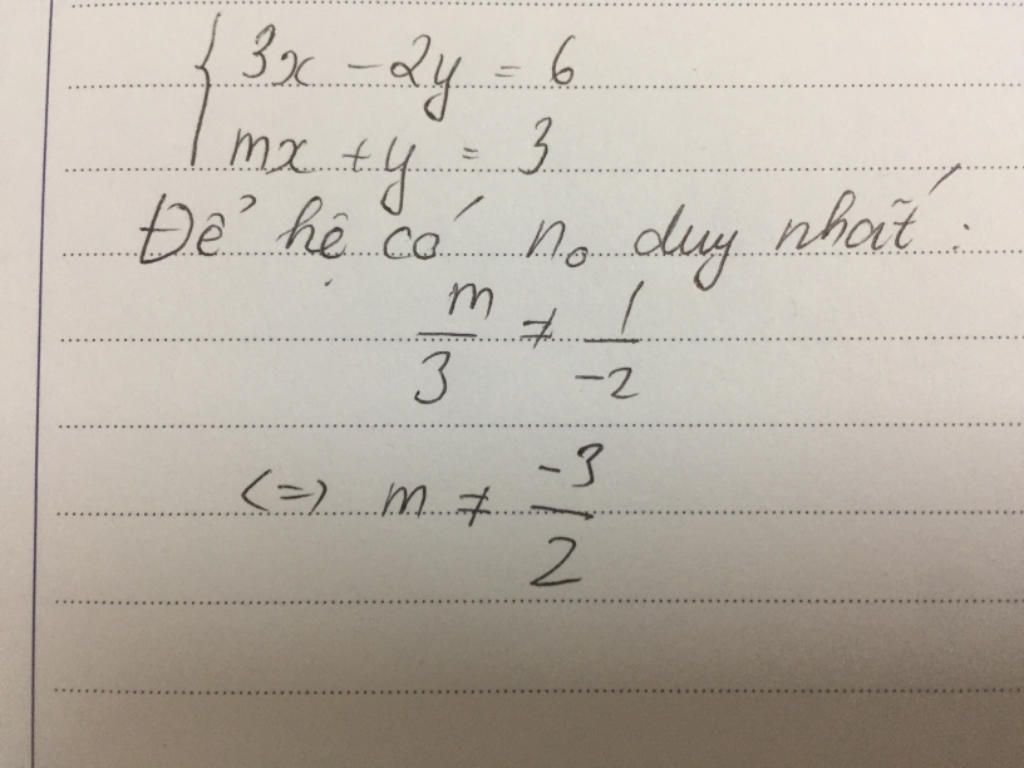 { 3x - 2y = 6
mx + y = 3
Để hệ có n₀ duy nhất :
m/3 ≠ 1/-2
<=> m ≠ -3/2